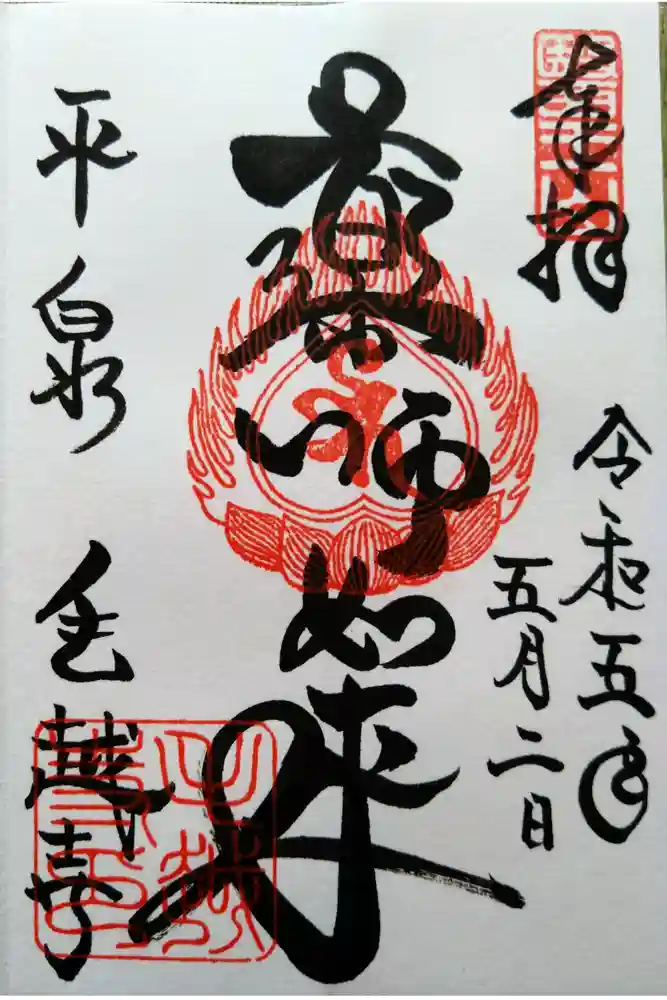 奉拝
令和五年
五月二日
薬師如来
平泉 毛越寺
毛越
寺印